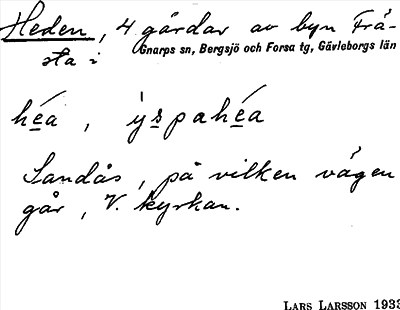 Heden, 4 gårdar av byn Frä-
sta i Gnarps sn, Bergsjö och Forsa tg, Gävleborgs län
héa, ýspahéa
Sandås, på vilken vägen
går, V. kyrkan.
LARS LARSSON 1933